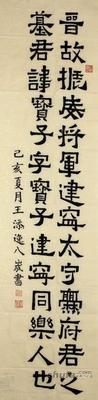 晋故振威將軍建寧太守爨府君之
墓君諱寳子字寳子建寧同樂人也
己亥夏月王添逸八歲書